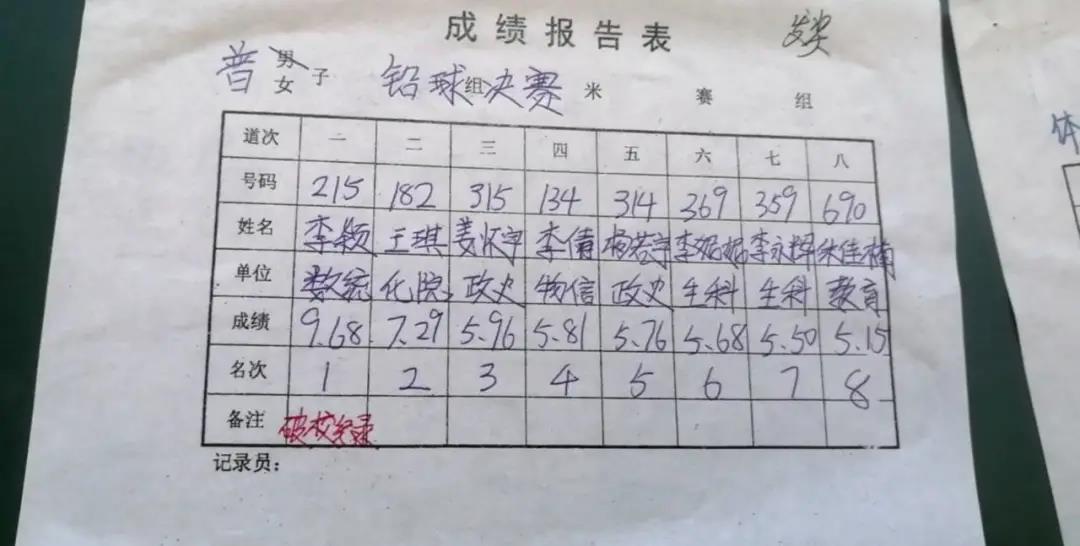 成绩报告表 发奖
普 男 女 子 铅球 组 决赛 米 赛 组
道次 一 二 三 四 五 六 七 八
号码 215 182 315 134 314 369 359 690
姓名 李颖 王琪 姜怀宇 李倩 杨若宇 李妮妮 李永辉 朱佳楠
单位 数统 化院 政史 物信 政史 生科 生科 教育
成绩 9.68 7.29 5.96 5.81 5.76 5.68 5.50 5.15
名次 1 2 3 4 5 6 7 8
备注 破校纪录
记录员：
体